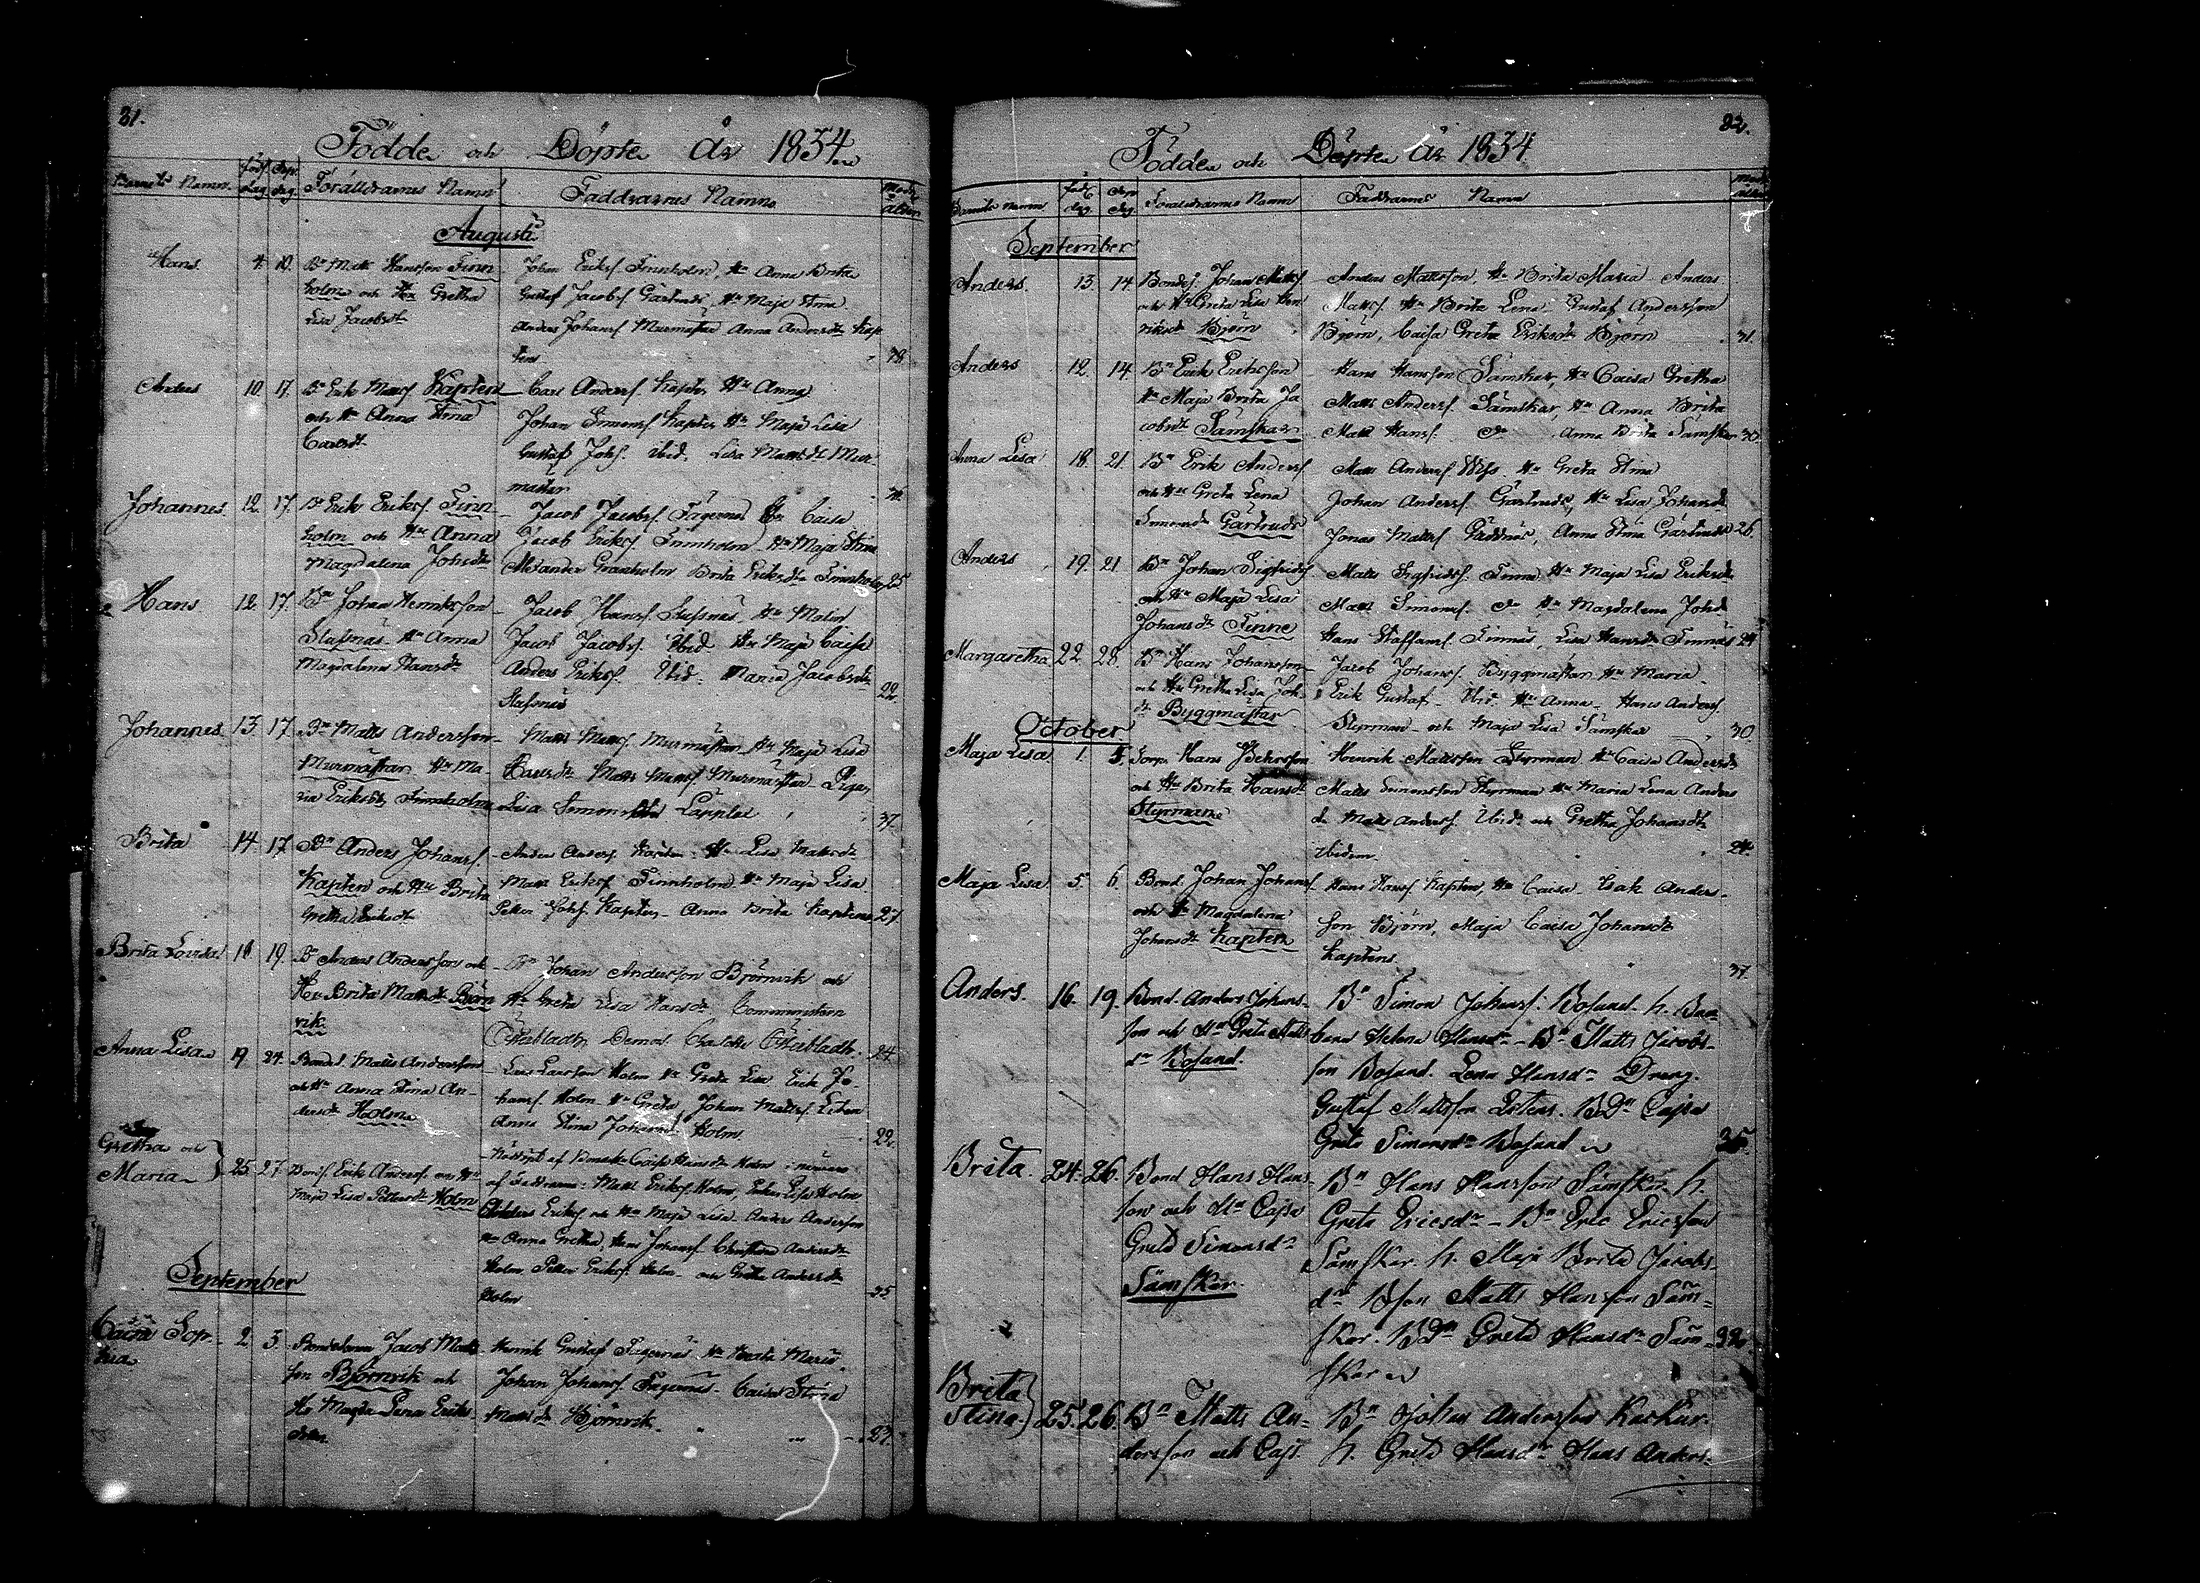 31.
Födde och Döpte År 1834
Barnets Namn. Föds dag Döp dag Föräldrarnes Namn Faddrarnes Namn Mod. ålder
Augusti
Hans 4. 10. Bn Matts Hansson Finn
holm och Hu Gretha
Lisa Jacobsdr
Johan Eriksf Finnholm, Hu Anna Brita
Gustaf Jacobsf Gärtruds, Hu Maja Stina
Anders Johansf Murmästar Anna Andersdr Kap
tens 28
Anders 10. 17. Bn Erik Mattsf Kaptens
och Hu Anna Stina
Carlsdr
Carl Andersf Kapten Hu Anna
Johan Simonsf Kapten Hu Maja Lisa
Gustaf Johsf. ibid. Lisa Mattsdr Mur-
mästar
Johannes 12 17. Bn Erik Eriksf Finn
holm och Hu Anna
Magdalena Johsdr
Jacob Jacobsf. Fagernäs Hu Caisa
Jacob Eriksf Finnholm Hu Maja Stina
Alexander Granholm Brita Eriksdr Finnholm 25
Hans 12 17. Bn Johan Henriksson
Slafsnäs Hu Anna
Magdalena Hansdr
Jacob Hansf. Slafsnäs Hu Malin
Jacob Jacobsf. Ibid Hu Maja Caisa
Anders Eriksf. Ibid. Maria Jacobsdr
Slafsnäs 22.
Johannes 13. 17. Bn Matts Andersson
Murmästar Hu Ma-
ria Eriksdr Finnholm
Matts Mattsf Murmästar Hu Maja Lisa
Carlsdr Matts Mattsf Murmästar Piga
Lisa Simonsdr Lapplax 37.
Brita 14 17 Bn Anders Johansf.
Kapten och Hu Brita
Gretha Eriksdr
Anders Andersf. Kapten Hu Lisa Mattsdr
Matts Eriksf Finnholm Hu Maja Lisa
Petter Johsf. Kapten Anna Brita Kaptens 27
Brita Lovisa 18 19. Bn Anders Andersson och
Hu Brita Mattsdr Björn
vik.
Bn Johan Andersson Björnvik och
Hu Greta Lisa Hansdr Comministern
Österbladh, Demos. Charlotte Österbladh. 24.
Anna Lisa 19 24. Bonden Matts Andersson
och Hu Anna Stina An-
dersdr Holm
Lars Larsson Holm Hu Greta Lisa Erik Jo-
hansf. Holm Hu Greta Johan Mattsf.
Anna Stina Johansdr Holm. 22.
Gretha och
Maria 25. 27. Bond. Erik Andersf. och Hu
Maja Lisa Pettersdr Holm
Nöddopt af Caisa Hansdr Holm i närvaro
af Faddrarne: Matts Eriksf. Holm,
Anders Eriksf och Hu Maja Lisa Anders Andersson
Hu Anna Gretha, Hans Johansf. Christina Andersdr
Holm, Petter Eriksf. Holm och Greta Andersdr
Holm 35
September
Caisa Sop-
hia 2. 3. Bondesonen Jacob Matts
son Björnvik och
Hu Magda Lena Eriks
doter
Henrik Gustaf Fagernäs Hu Beata Maria
Johan Johansf. Fagernäs Caisa Stina
Mattsdr Björnvik 27.
32.
Födde och Döpte År 1834
Barnets namn föds dag döp dag Föräldrarnes Namn Faddrarnes Namn
September
Anders. 13. 14 Bondes. Johan Mattsf
och Hu Greta Lisa Hen
riksdr Björn
Anders Mattsson, Hu Brita Maria Anders
Mattsf. Hu Brita Lena Gustaf Andersson
Björn, Caisa Greta Eriksdr Björn 31.
Anders 12. 14. Bn Erik Ericsson
Hu Maja Brita Ja
cobsdr Sämskar
Hans Hansson Sämskar, Hu Caisa Gretha
Matts Andersf. Sämskar Hu Anna Brita
Matts Hansf. do Anna Brita Sämskar 30.
Anna Lisa 18. 21. Bn Erik Andersf
och Hu Greta Lena
Simonsdr Gärtruds
Matts Andersf Hu Greta Stina
Johan Andersf. Gärtruds, Hu Lisa Johansdr
Jonas Mattsf Gäddnäs, Anna Stina Gärtruds 26.
Anders 19. 21. Bn Johan Sigfridsf
och Hu Maja Lisa
Johansdr Finne
Matts Sigfridsf. Finne Hu Maja Lisa Eriksdr
Matts Simonsf. do Hu Magdalena Johsdr
Hans Staffansf. Finnäs, Lisa Hansdr Finnäs 24
Margaretha 22. 28. Bn Hans Johansson
och Hu Gretha Lisa Joh.
dr Byggmästar
Jacob Johansf. Byggmästar Hu Maria
Erik Gustaf Ibid. Hu Anna Hans Andersf.
Styrman och Maja Lisa Sämskar 30.
October
Maja Lisa 1. 5. Torp. Hans Pehrsson
och Hu Brita Hansdr
Styrmans
Henrik Mattsson Styrman Hu Caisa Andersdr
Matts Simonsson Styrman Hu Maria Lena Anders
dr Matts Andersf. Ibid. och Gretha Johansdr
Ibidem.
Maja Lisa 5. 6. Bond. Johan Johansf
och Hu Magdalena
Johansdr Kapten
Hans Hansf Kapten, Hu Caisa Isak Anders-
son Björn, Maja Caisa Johansdr
Kaptens. 37.
Anders. 16. 19. Bond. Anders Johans-
son och Hu Greta Matts
dr Bosund.
Bn Simon Johansf. Bosund. h. Bar-
bara Helena Hansdr - Bn Matts Jacobs-
son Bosund. Lena Hansdr Dreng.
Gustaf Mattsson. BDr Cajsa
Greta Simonsdr Bosund
Brita. 24. 26. Bond Hans Hans-
son och Hu Cajsa
Greta Simonsdr
Sämskar.
Bn Hans Hansson Sämskar h.
Greta Ericsdr - Bn Eric Ericsson
Sämskar. h. Maja Brita Jacobs-
dr Bson Matts Hansson Säm-
skar. BDr Greta Hansdr Säm- 32.
skar
Brita
Stina 25. 26. Bn Matts An-
dersson och Cajs.
Bn Johan Andersson Karkar.
h. Greta Hansdr Hans Anders-